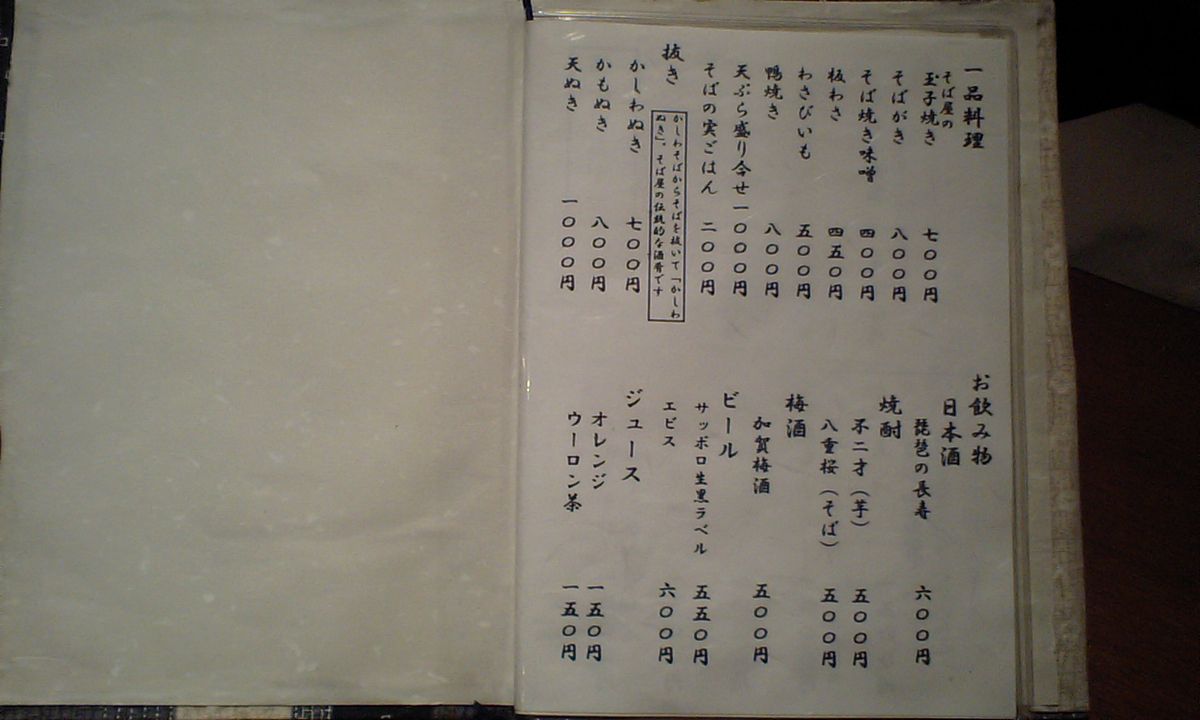 一品料理
そば屋の
玉子焼き 七〇〇円
そばがき 八〇〇円
そば焼き味噌 四〇〇円
板わさ 四五〇円
わさびいも 五〇〇円
鴨焼き 八〇〇円
天ぷら盛り合せ 一〇〇〇円
そばの実ごはん 二〇〇円
抜き
かしわそばからそばを抜いて「かしわ
ぬき」。そば屋の伝統的な酒肴です
かしわぬき 七〇〇円
かもぬき 八〇〇円
天ぬき 一〇〇〇円
お飲み物
日本酒
琵琶の長寿 六〇〇円
焼酎
不二才(芋) 五〇〇円
八重桜(そば) 五〇〇円
梅酒
加賀梅酒 五〇〇円
ビール
サッポロ生黒ラベル 五五〇円
エビス 六〇〇円
ジュース
オレンジ 一五〇円
ウーロン茶 一五〇円